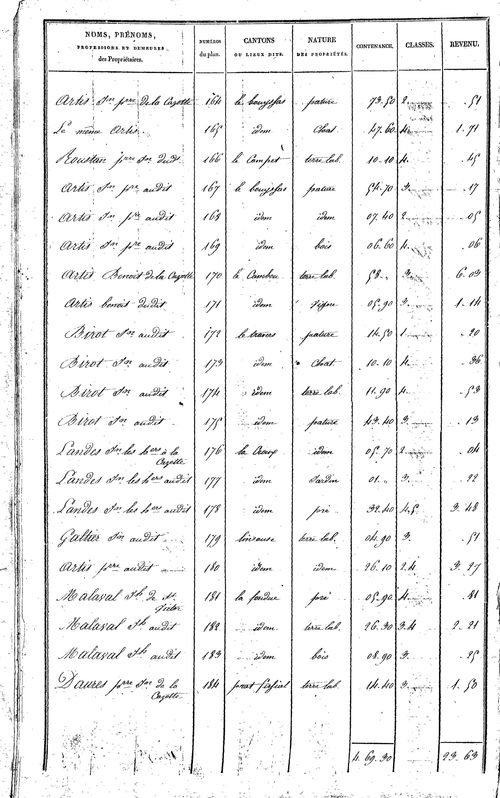 NOMS, PRÉNOMS, PROFESSIONS ET DEMEURES des Propriétaires. | NUMÉROS du plan. | CANTONS OU LIEUX DITS. | NATURE DES PROPRIÉTÉS. | CONTENANCE. | CLASSES. | REVENU.
Artis Jn pre de la Cazotte 164 le bouyssas pature 73.50 2 .51
Le même Artis 165 idem Chat. 47.60 4. 1.71
Roustan pre Jn dudt 166 le Campet terre lab. 10.10 4. .45
Artis Jn pre audit 167 le bouyssas pature 54.70 3. .17
Artis Jn pre audit 168 idem idem 07.40 2 .05
Artis Jn pre audit 169 idem bois 06.60 4. .06
Artis Benoit de la Cazotte 170 le Cambou terre lab. 58. 3. 6.03
Artis benoit dudit 171 idem Vigne 05.90 3. 1.14
Birot Jn audit 172 le travers pature 14.50 1 .20
Birot Jn audit 173 idem Chat 10.10 4. .36
Birot Jn audit 174 idem terre lab. 11.90 4. .53
Birot Jn audit 175 idem pature 43.40 3. .13
Landes Jn les hers à la Cazotte 176 la Croux idem 05.70 2 .04
Landes Jn les hers audit 177 idem Jardin 01. 3. .22
Landes Jn les hers audit 178 idem pré 32.40 4.5 3.48
Galtier Jn audit 179 terre lab. 04.90 3. .51
Artis pre audit 180 idem idem 26.10 2.4 3.27
Malaval Jh de St Victor 181 pré 05.90 4. .81
Malaval Jh audit 182 idem terre lab. 26.30 3.4 2.21
Malaval Jh audit 183 idem bois 08.90 3. .25
Daures pre Jn de la Cazotte 184 terre lab. 14.40 3. 1.50
4.69.30 23.63